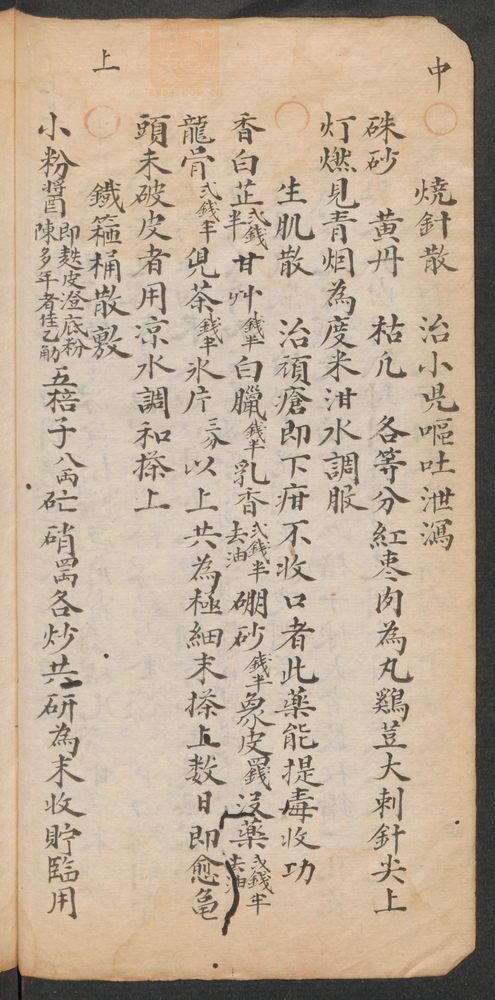 中
燒針散 治小児嘔吐泄瀉
硃砂 黃丹 枯凡 各等分紅枣肉為丸雞荳大刺針尖上
灯燃見青烟為度米泔水調服
生肌散 治頑瘡即下疳不收口者此藥能提毒收功
香白芷弍錢半甘艸錢半白臘錢半乳香弍錢半去油硼砂錢半象皮錢沒藥弍錢半去油
龍骨弍錢半児茶錢半氷片三分以上共為極細末搽上数日即愈龟
頭未破皮者用凉水調和搽上
上
鐵箍桶散敷
小粉醬即麩皮澄底粉陳多年者佳乙觔五棓子八兩硭硝四兩各炒共研為末收貯臨用